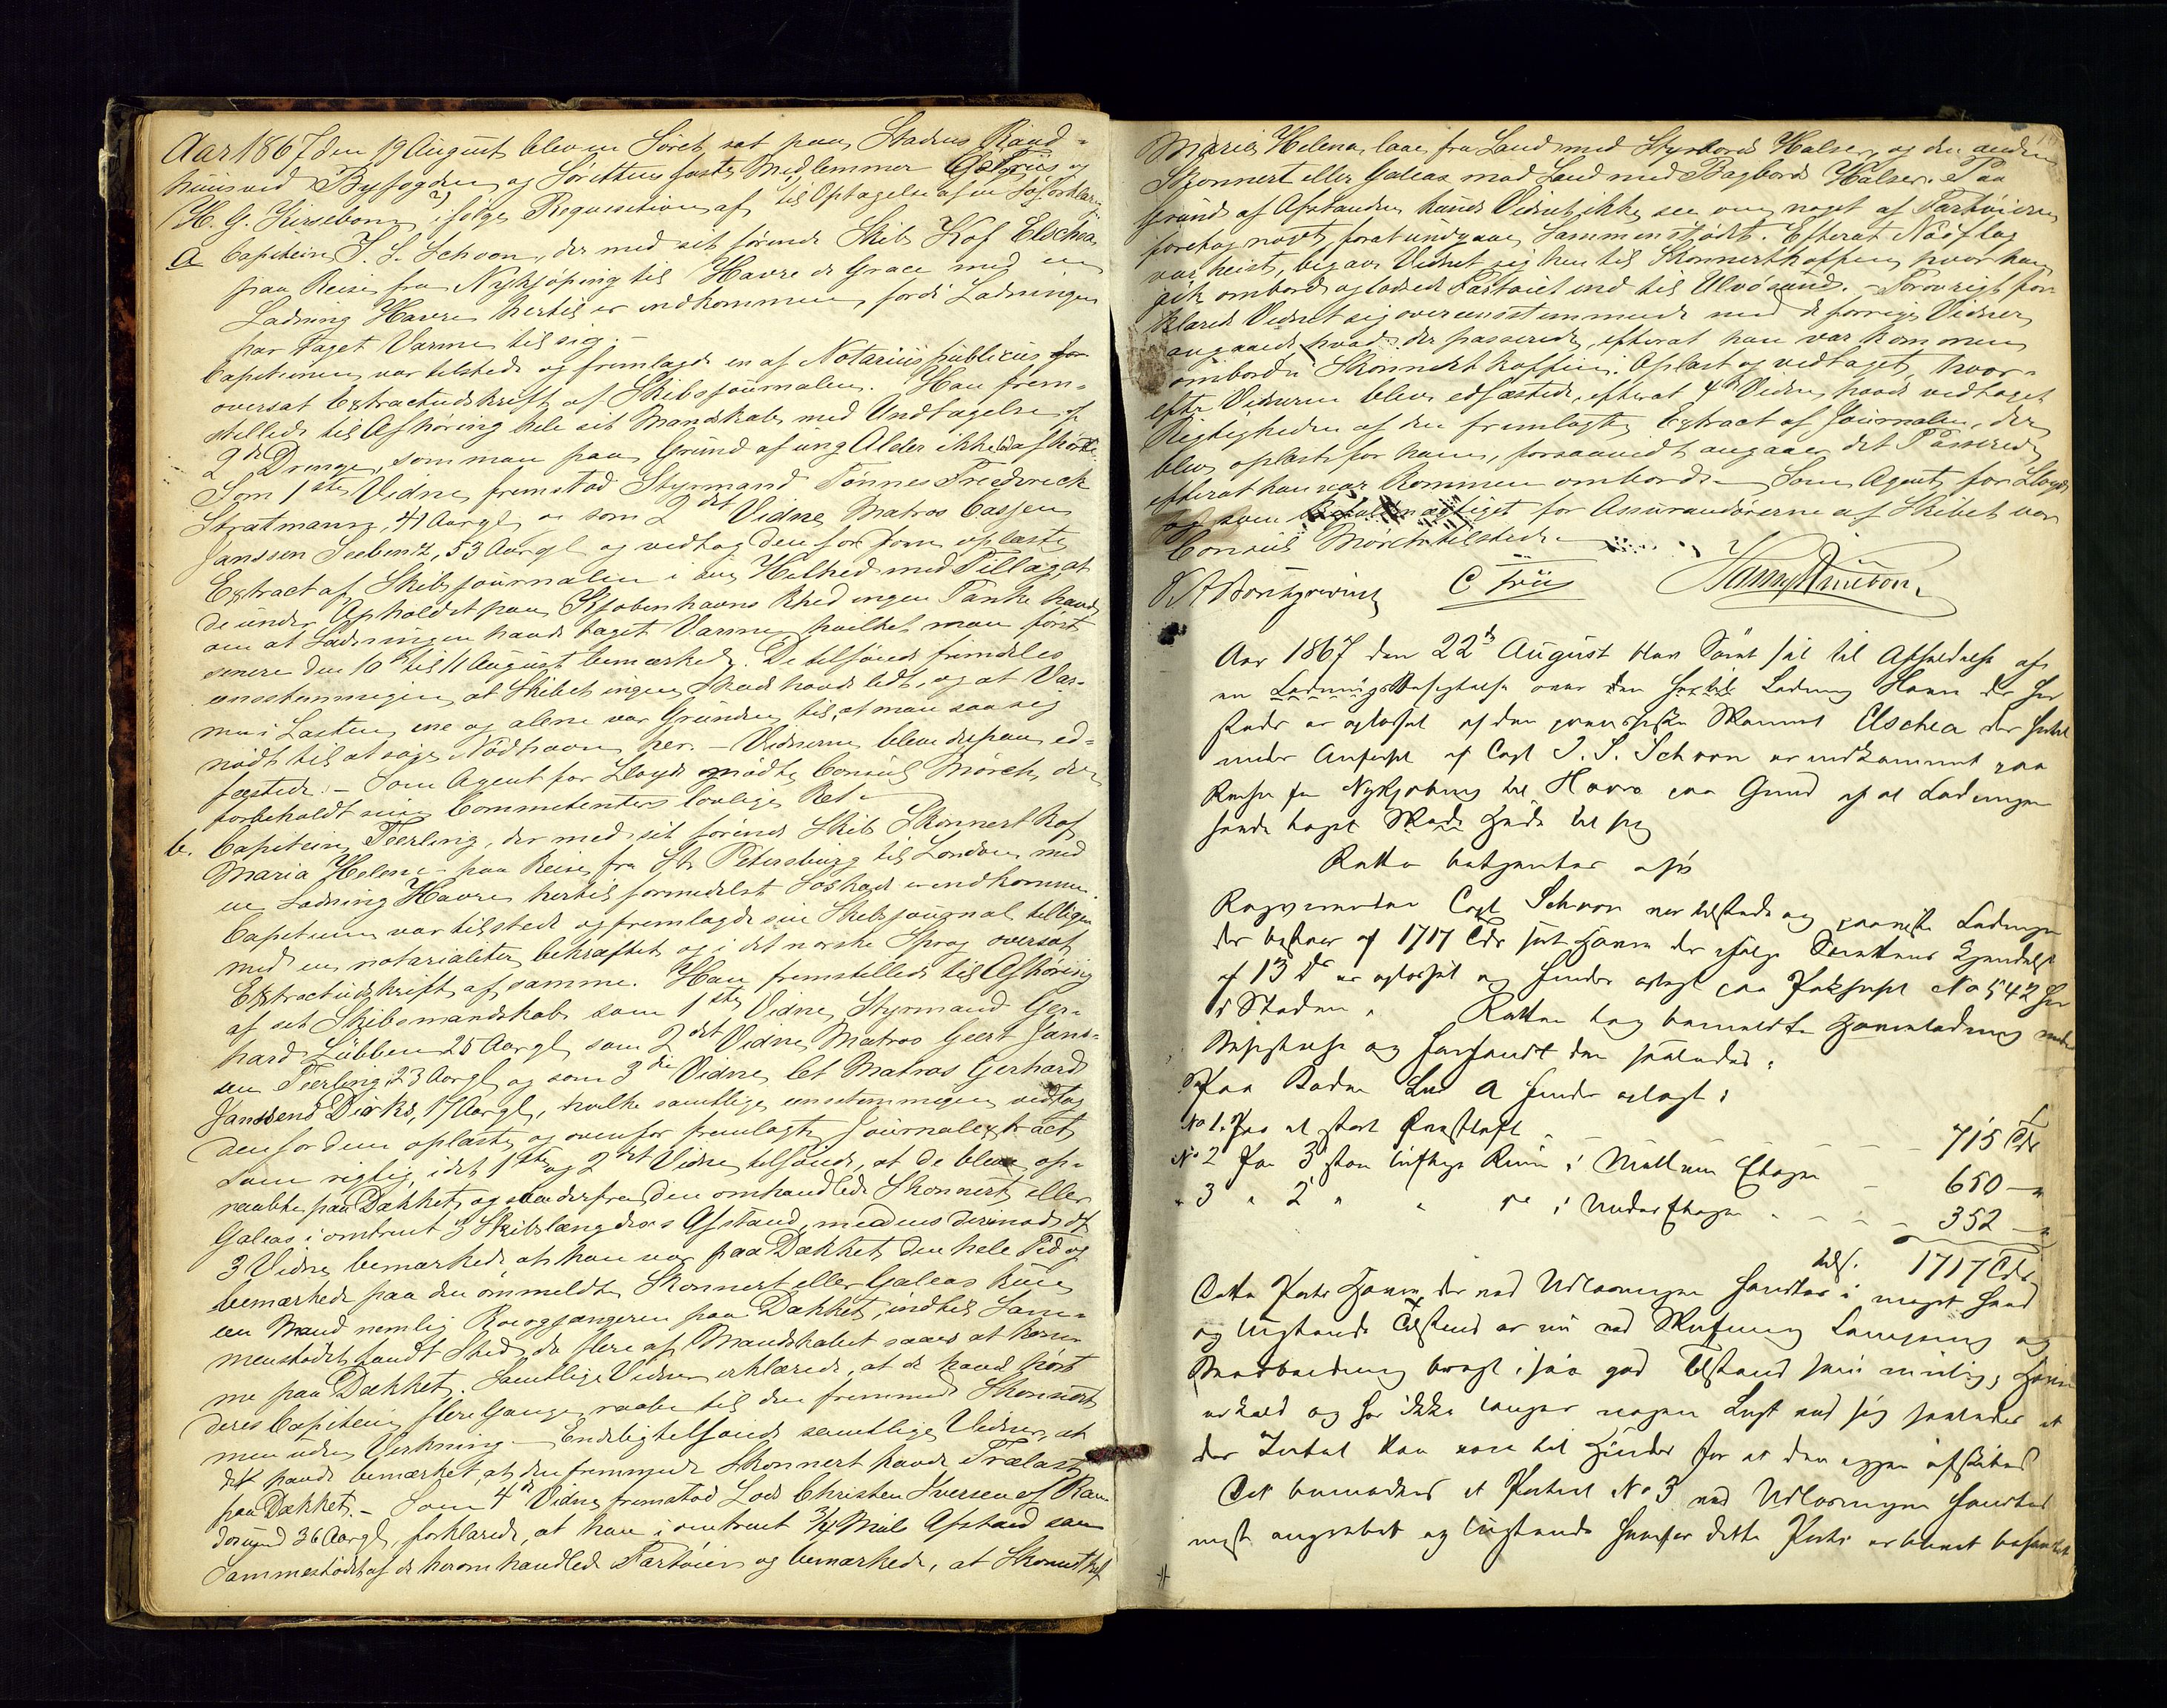 Aar 1867 den 19 August blev en Söret sat paa Stadens Raad-
huus ved Byfogden og Sörettens faste Medlemmer C. Friis og
H. G. Kirsebom ifölge Requisition af til Optagelse af en Söforklaring
a Capitein T. S. Schoon, der med sit förende Skib Kof Elschea
paa Reise fra Nykjöping til Havre de Grace med en
Ladning Havre hertil er indkommen, fordi Ladningen
har taget Varme til sig. -
Capteinen var tilstede og fremlagde en af Notarius publicus
oversat Extractudskrift af Skibsjournalen. Han frem-
stillede til Afhöring hele sit Mandskab med Undtagelse af
2de Drenge, som man paa Grund af ung Alder ikke afhörte.
Som 1ste Vidne fremstod Styrmand Tönnes Frederick
Stratmann, 41 Aar gl. og som 2det Vidne Matros Cassjen
Janssen Seebentz, 53 Aar gl og vedtog den for dem oplæste
Extract af Skibsjournalen i sin Helhed med Tillæg, at
de under Opholdet paa Kjöbenhavns Rhed ingen Tanke havde
om at Ladningen havde taget Varme, hvilket man först
senere den 10de til 11 August bemærkede. De tilföiede fremdeles
eensstemmigen, at Skibet ingen Skade havde lidt, og at Var-
men i Lasten ene og alene var Grunden til, at man saa sig
nödt til at söge Nödhavn her. - Vidnerne bleve derpaa ed-
fæstede. - Som Agent for Lloyds mödte Consul Mörch, der
forbeholdt sine Committenters lovlige Ret. -
b. Capitein Teerling, der med sit förende Skib Skonnert Kof
Maria Helena - paa Reise fra St. Petersburg til London med
en Ladning Havre hertil formedelst Söskade er indkommen.
Capteinen var tilstede og fremlagde sin Skibsjournal tilligemed
med en notarialiter bekræftet og i det norske Sprog oversat
Extractudskrift af samme. Han fremstillede til Afhöring
af sit Skibsmandskab som 1ste Vidne, Styrmand Ger-
hard Lübben 25 Aar gl, som 2det Vidne Matros Geert Jans-
sen Teerling 23 Aar gl og som 3die Vidne Let Matros Gerhard
Janssend Dirks, 17 Aar gl, hvilke samtlige eenstemmigen vedtog
den for dem oplæste og ovenfor fremlagte Journalextract
som rigtig, idet 1ste og 2det Vidne tilföiede, at de bleve op-
raabte paa Dækket, og saa derfra den omhandlede Skonnert eller
Galeas i omtrent 3 Skibslængders Afstand, medens derimod dt
3 Vidne bemærkede at han var paa Dækket den hele Tid og
bemærkede paa den ommeldte Skonnert eller Galeas kun
een Mand nemlig Rorgjængeren paa Dækket, indtil Sam-
menstödet fandt Sted, da flere af Mandskabet saaes at kom-
me paa Dækket. Samtlige Vidner erklærede, at de havde hört
deres Capitein flere Gange raabe til den fremmede Skonnert
men uden Virkning. - Endelig tilföiede samtlige Vidner, at
de havde bemærket, at den fremmede Skonnert havde Trælast
paa Dækket. - Som 4de Vidne fremstod Lods Christen Iversen af Ran-
dösund 36 Aar gl, forklarede, at han i omtrent 3/4 Miils Afstand saa
Sammenstödet af de heromhandlede Fartöier og bemærkede, at Skonnertkof
Maria Helena laae fra Land med Styrbords Halser og den anden
Skonnert eller Galeas mod Land med Bagbords Halser. Paa
Grund af Afstanden kunde Vidnet ikke see om noget af Fartöierne
foretog noget for at undgaae Sammenstödet. Efterat Nödflag
var heist, begav Vidnet sig hen til Skonnertkoffen, hvor han
gik ombord og lodsede Fartöiet ind til Ulvösund. - Forövrigt for-
klarede Vidnet sig overeensstemmende med de forrige Vidner
angaaende hvad der passerede, efterat han var kommen
ombord i Skonnertkoffen. Oplæst og vedtaget, hvor-
efter Vidnerne bleve edfæstede, efterat 4de Vidne havde vedtaget
Rigtigheden af den fremlagte Extract af Journalen, der
blev oplæst for ham, forsaavidt angaaer det Passerede
efterat han var kommen ombord. - Som Agent for Lloyds
og som befuldmægtiget for Assurandörerne af Skibet var
Consul Mörch tilstede. -
C Friis
Aar 1867 den 22de August blev Söret sat til Afholdelse af
en Ladnings Besigtelse over den Ladning Havre der her
Stedet er oplosset af den Skonnert Elschea der hertil
under Anförsel af Capt T. S. Schoon er indkommet paa
Reise fra Nykjobing til Havre paa Grund af at Ladningen
havde taget Skade Hede til sig
Retten betjentes af
Rogvirenten Capt Schoon var tilstede og paaviste Ladningen
der bestaaer af 1717 Tdr som ifölge Sörettens Kjendelse
af 13 ds er oplosset og findes oplagt paa Pakhuset No 542 her
i Staden. Retten tog bemeldte Havreladning under
Besigtelse og forefandt den saaledes:
Paa Boden Litr A findes oplagt:
No 1. Paa et stort Qvistloft - - 715 Tdr
No 2 Paa 3 store luftige Rum i Mellem Etagen - 650 - "
" 3 " 2 " " do i Under Etagen - - - - 352 - "
tils. 1717 Tdr
Dette Parti Havre, der ved Udlosningen fandtes i meget heed
og lugtende Tilstand er nu ved Skufning Lempning og
Bearbeidning bragt i saa god Tilstand som mulig, Havren
er kold og har ikke længer nogen Lugt ved sig saaledes at
der Intet kan være til Hinder for at den igjen afskibes
Det bemærkes at Partiet No 3 ved Udlosningen fandtes
mest angrebet og lugtende hvorfor dette Parti er blevet